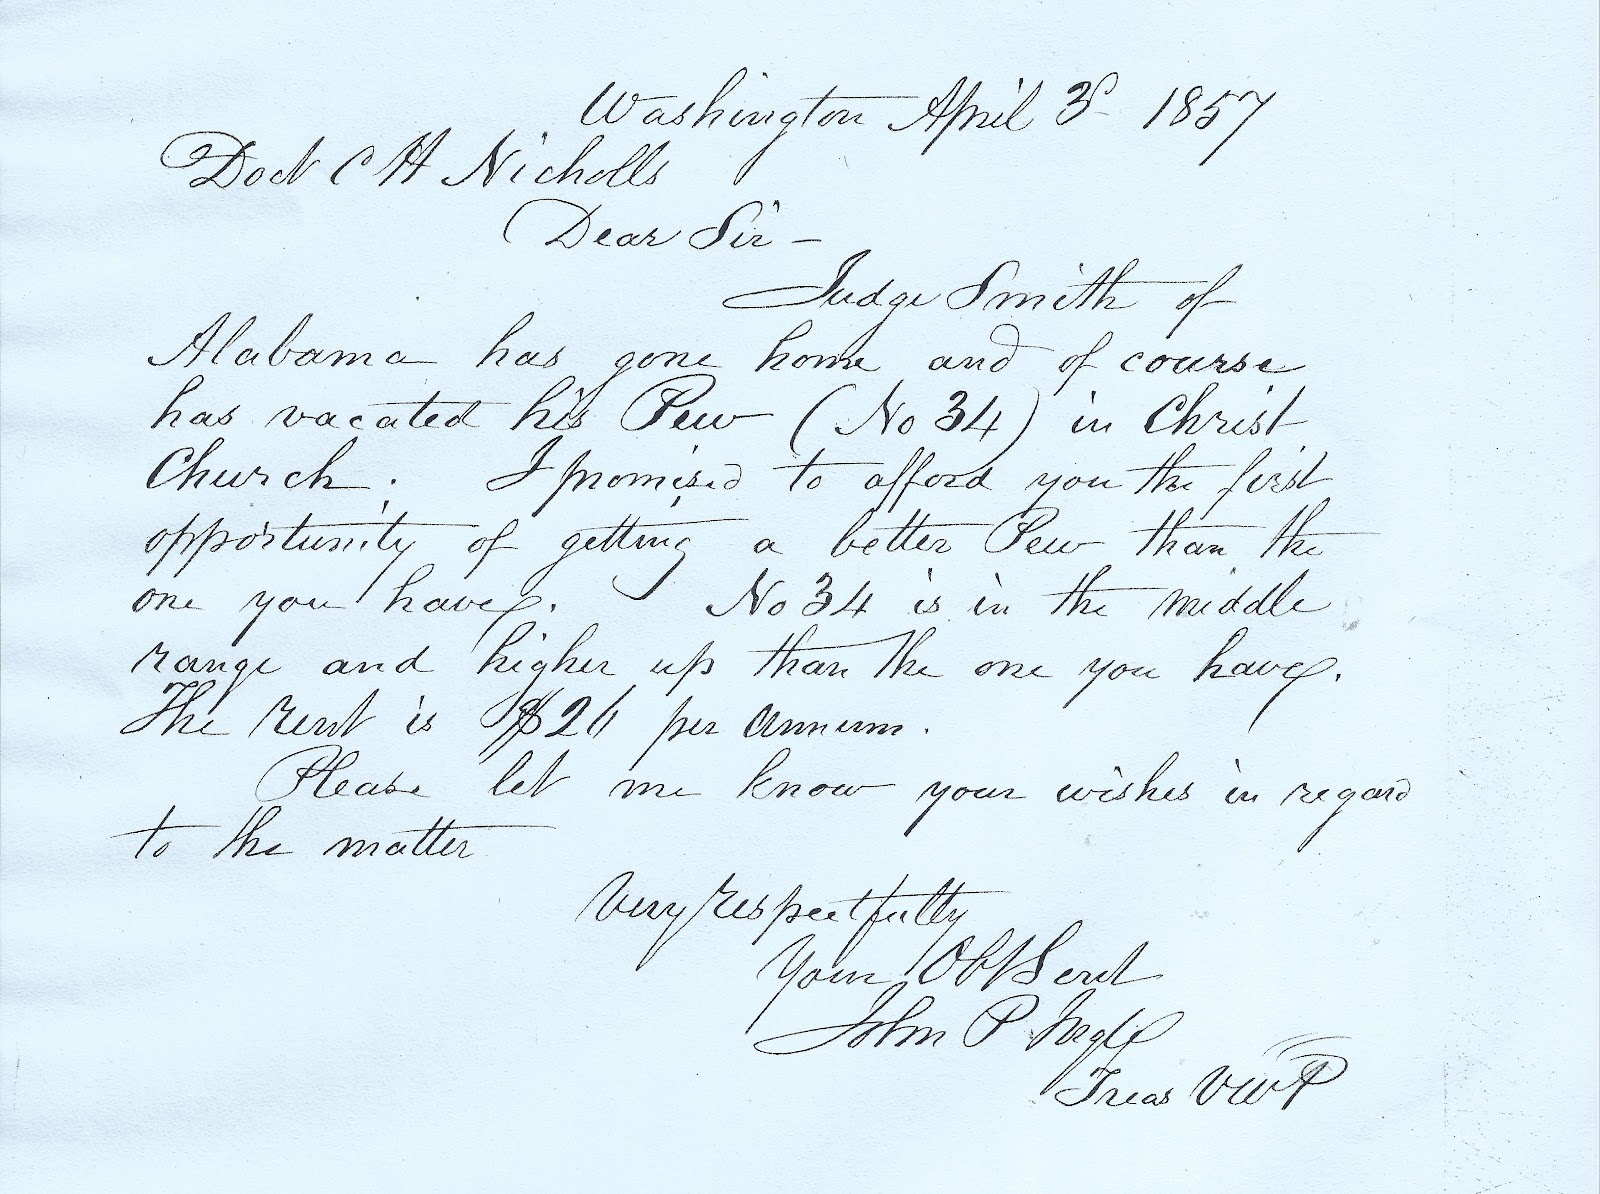 Washington April 3d 1857
Doct C H Nicholls
Dear Sir –
Judge Smith of
Alabama has gone home and of course
has vacated his Pew (No 34) in Christ
Church. I promised to afford you the first
opportunity of getting a better Pew than the
one you have. No 34 is in the middle
range and higher up than the one you have.
The rent is $26 per annum.
Please let me know your wishes in regard
to the matter
Very respectfully
Your Obt Servt
John P Ingle
Treas VWP